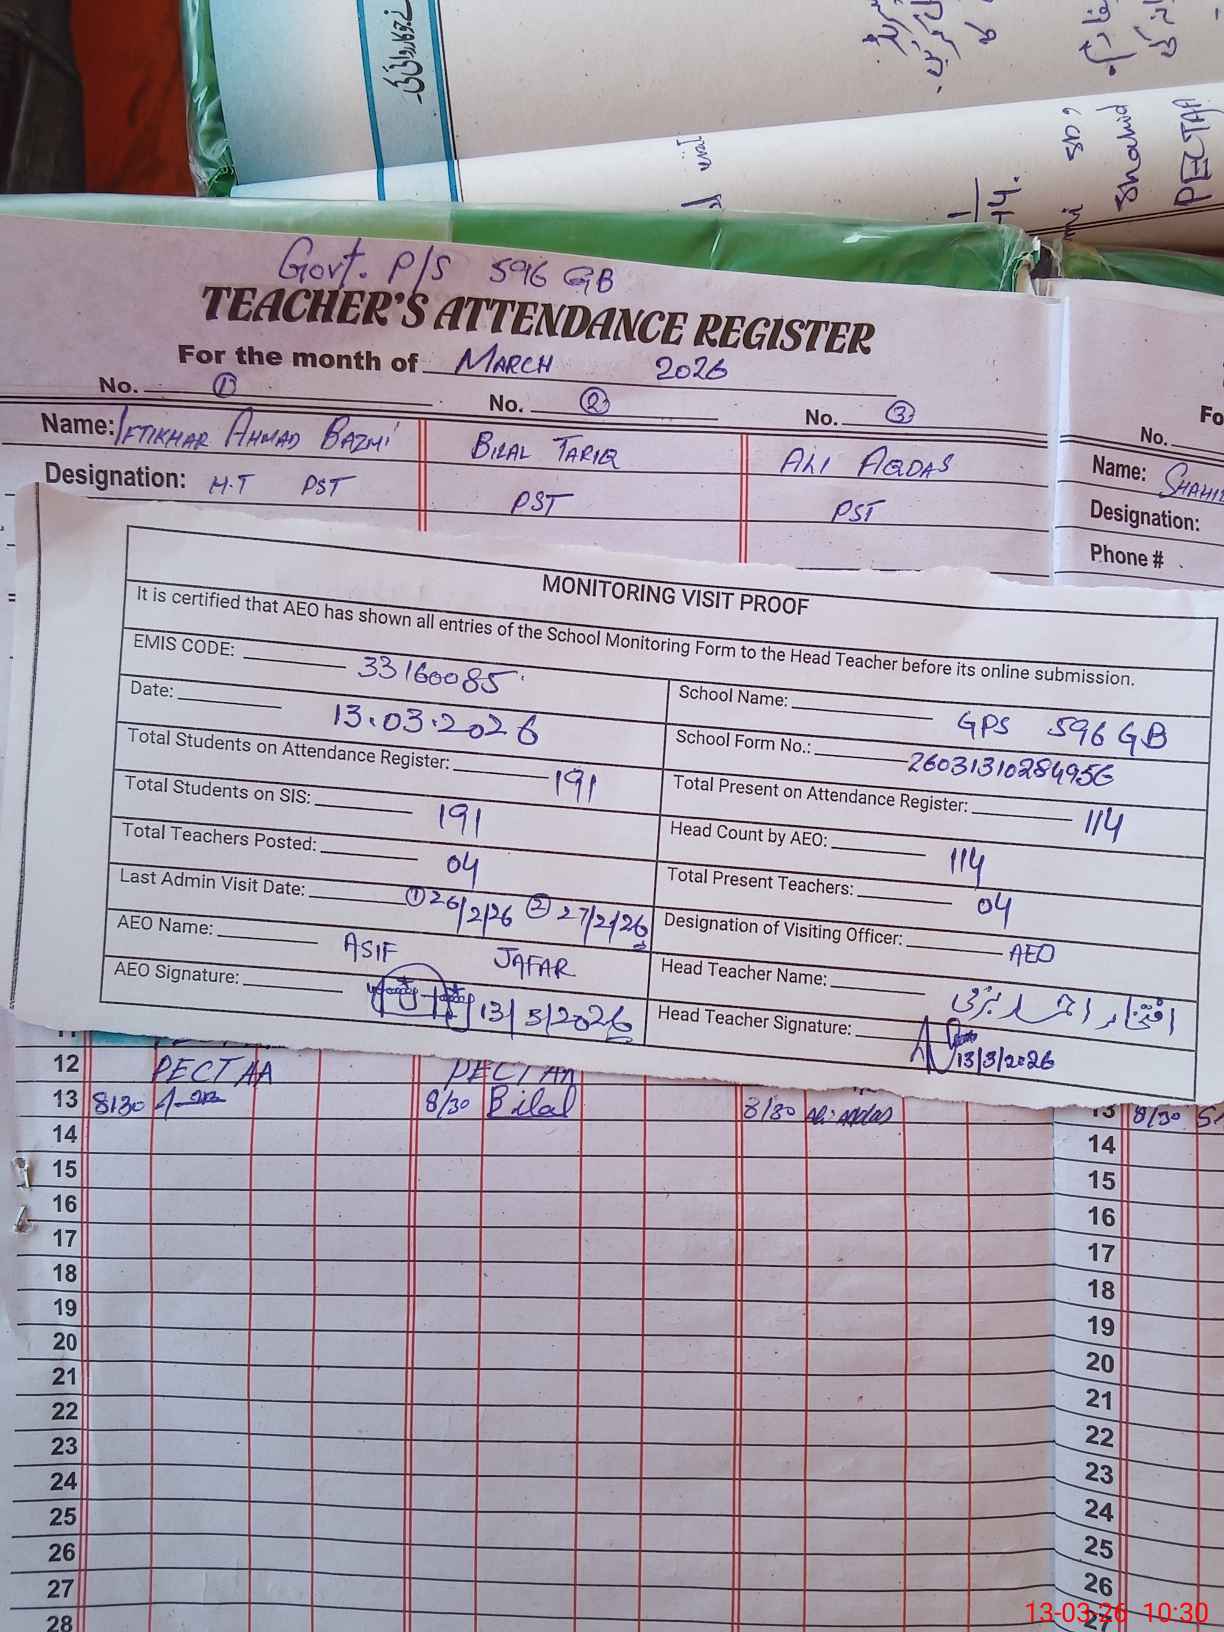 نے جو کاروائی کی۔
sb ,
Shahid
PECTAA
14.
Govt. P/S 596 GB
TEACHER'S ATTENDANCE REGISTER
For the month of MARCH 2026
No. 1 No. 2 No. 3
Name: IFTIKHAR AHMAD BAZMI BILAL TARIQ ALI AQDAS
Designation: H.T PST PST PST
Fo
No.
Name: SHAHID
Designation:
Phone #
MONITORING VISIT PROOF
It is certified that AEO has shown all entries of the School Monitoring Form to the Head Teacher before its online submission.
EMIS CODE: 33160085 School Name: GPS 596 GB
Date: 13.03.2026 School Form No.: 26031310284956
Total Students on Attendance Register: 191 Total Present on Attendance Register: 114
Total Students on SIS: 191 Head Count by AEO: 114
Total Teachers Posted: 04 Total Present Teachers: 04
Last Admin Visit Date: ① 26/2/26 ② 27/2/26 Designation of Visiting Officer: AEO
AEO Name: ASIF JAFAR Head Teacher Name: افتخار احمد بزمی
AEO Signature: 13/3/2026 Head Teacher Signature: 13/3/2026
11
12 PECTAA PECTAA
13 8/30 8/30 Bilal 8/30 Ali Aqdas 13 8/30
14 14
15 15
16 16
17 17
18 18
19 19
20 20
21 21
22 22
23 23
24 24
25 25
26 26
27 27
28
13-03-26 10:30